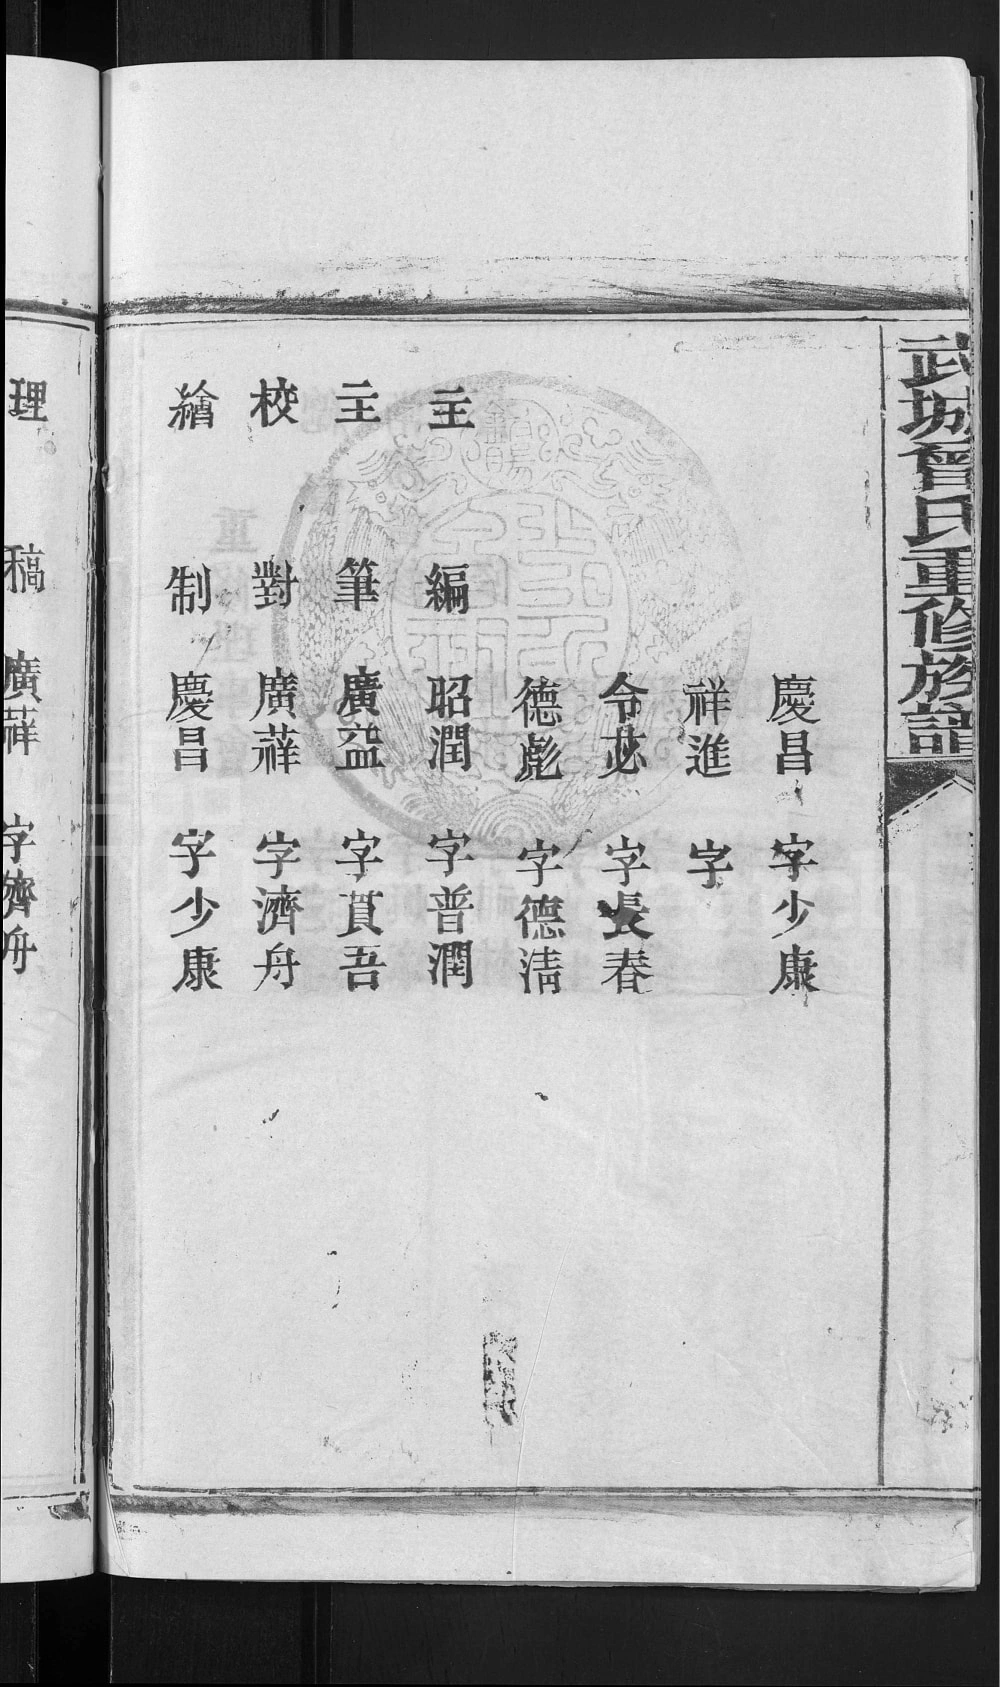 武城曾氏重修族譜
慶昌 字少康
祥進 字
令苾 字長春
德彪 字德清
主編 昭潤 字普潤
主筆 廣益 字貫吾
校對 廣蘚 字濟舟
繪制 慶昌 字少康
理稿 廣蘚 字濟舟